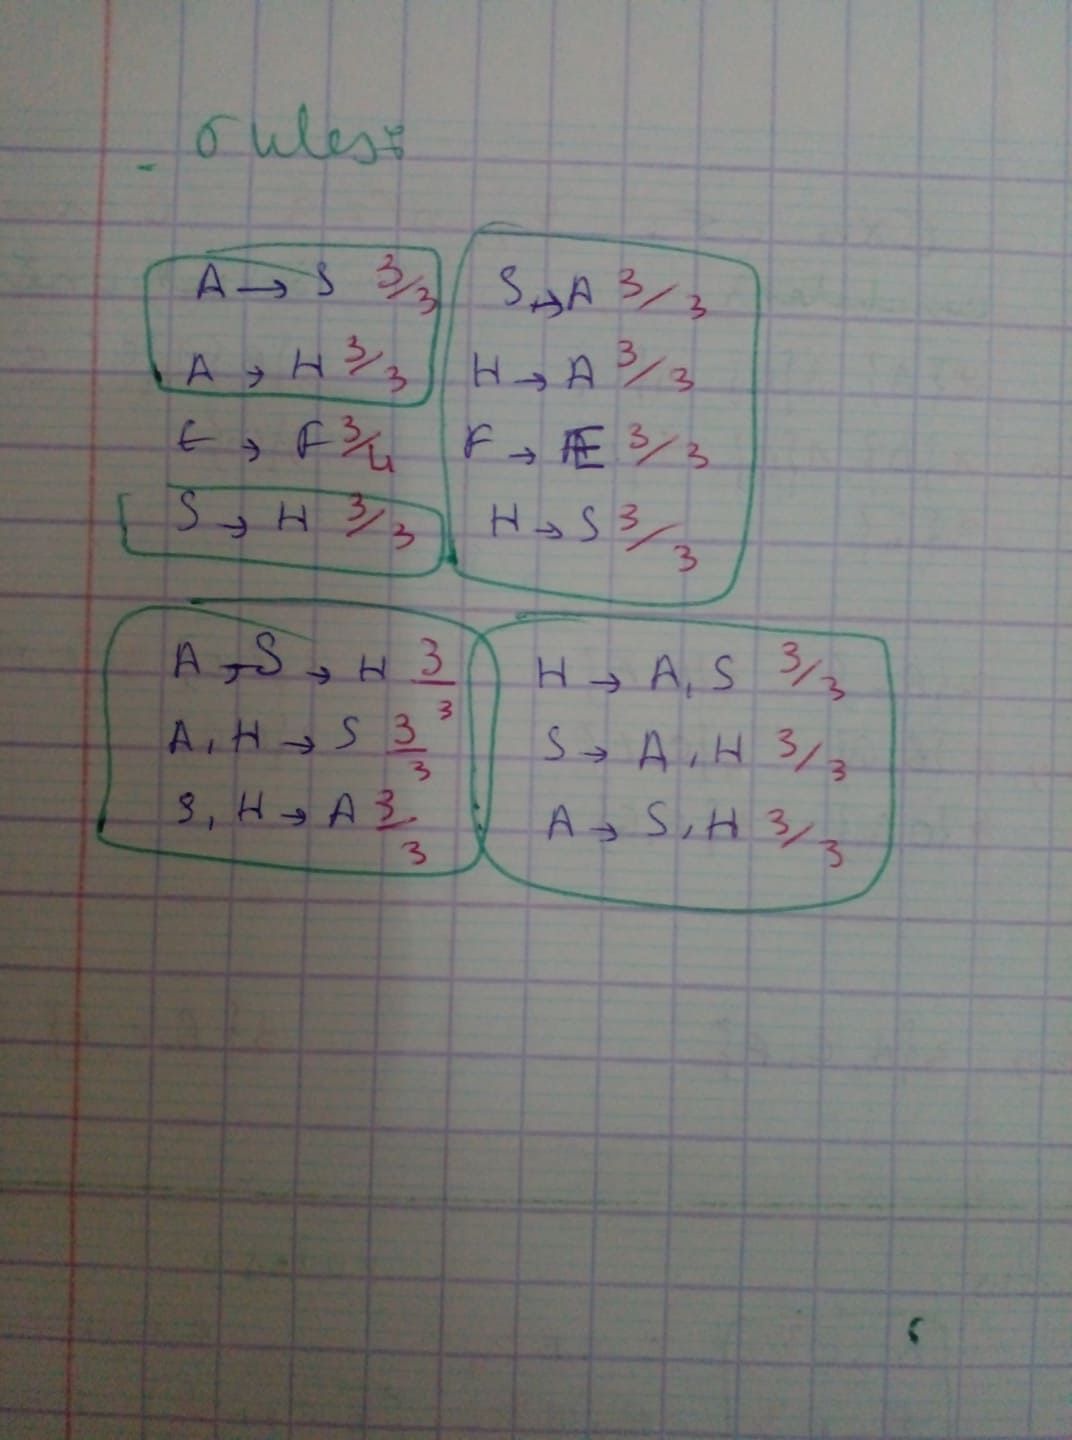 - rules:
A → S 3/3
A → H 3/3
E → F 3/4
S → H 3/3
S → A 3/3
H → A 3/3
F → E 3/3
H → S 3/3
A, S → H 3/3
A, H → S 3/3
S, H → A 3/3
H → A, S 3/3
S → A, H 3/3
A → S, H 3/3